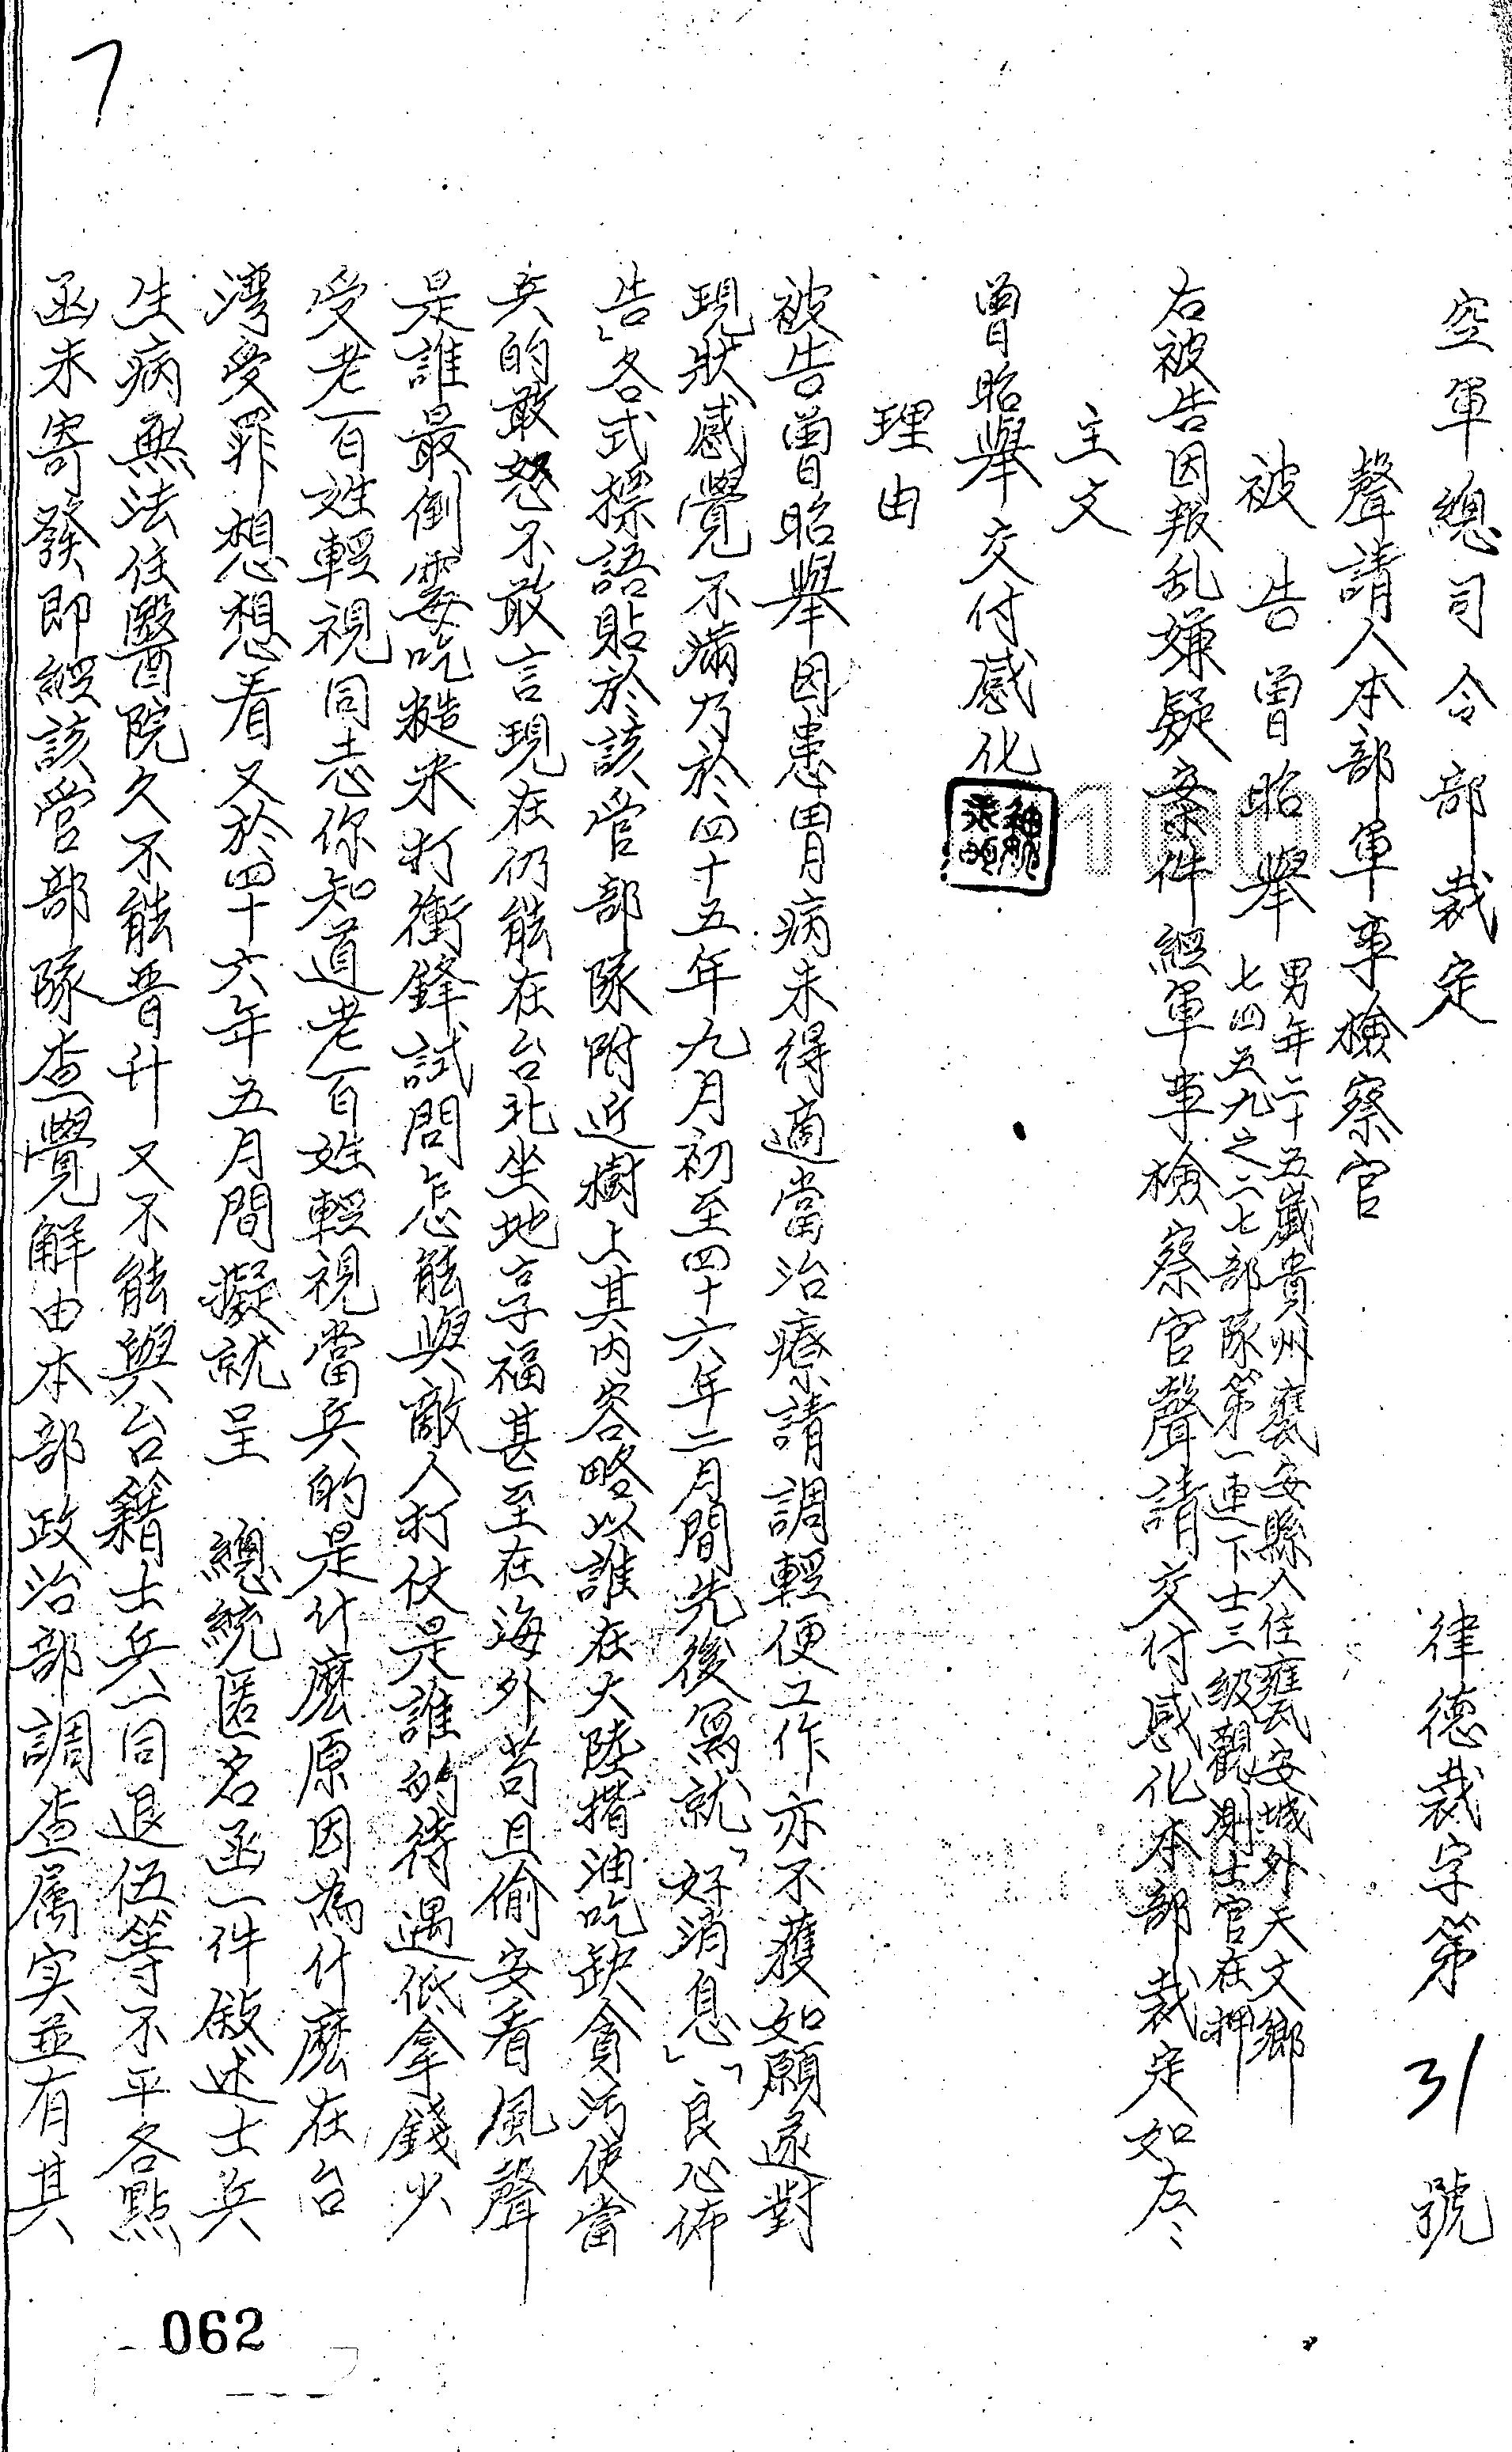 空軍總司令部裁定　律德裁字第31號
聲請人本部軍事檢察官
被告曾昭舉　男年二十五歲貴州甕安縣人住甕安城外天文鄉
七四五九之二七部隊第一連下士三級觀測士官在押
右被告因叛乱嫌疑案件經軍事檢察官聲請交付感化本部裁定如左：
主文
曾昭舉交付感化
理由
被告曾昭舉因患胃病未得適當治療請調輕便工作亦不獲如願遂對
現狀感覺不滿乃於四十五年九月初至四十六年二月間先後寫就「好消息」「良心佈
告」各式標語貼於該管部隊附近樹上其內容略以誰在大陸揩油吃缺貪污使當
兵的敢怒不敢言現在仍能在台北坐地享福甚至在海外苟且偷安看風聲
是誰最倒霉吃糙米打衝鋒試問怎能與敵人打仗是誰的待遇低拿錢少
受老百姓輕視同志你知道老百姓輕視當兵的是什麼原因為什麼在台
灣受罪想想看又於四十六年五月間擬就呈　總統匿名函一件敍述士兵
生病無法住醫院久不能晋升又不能與台籍士兵一同退伍等不平各點
函未寄發即經該管部隊查覺解由本部政治部調查属实並有其
7
100
062